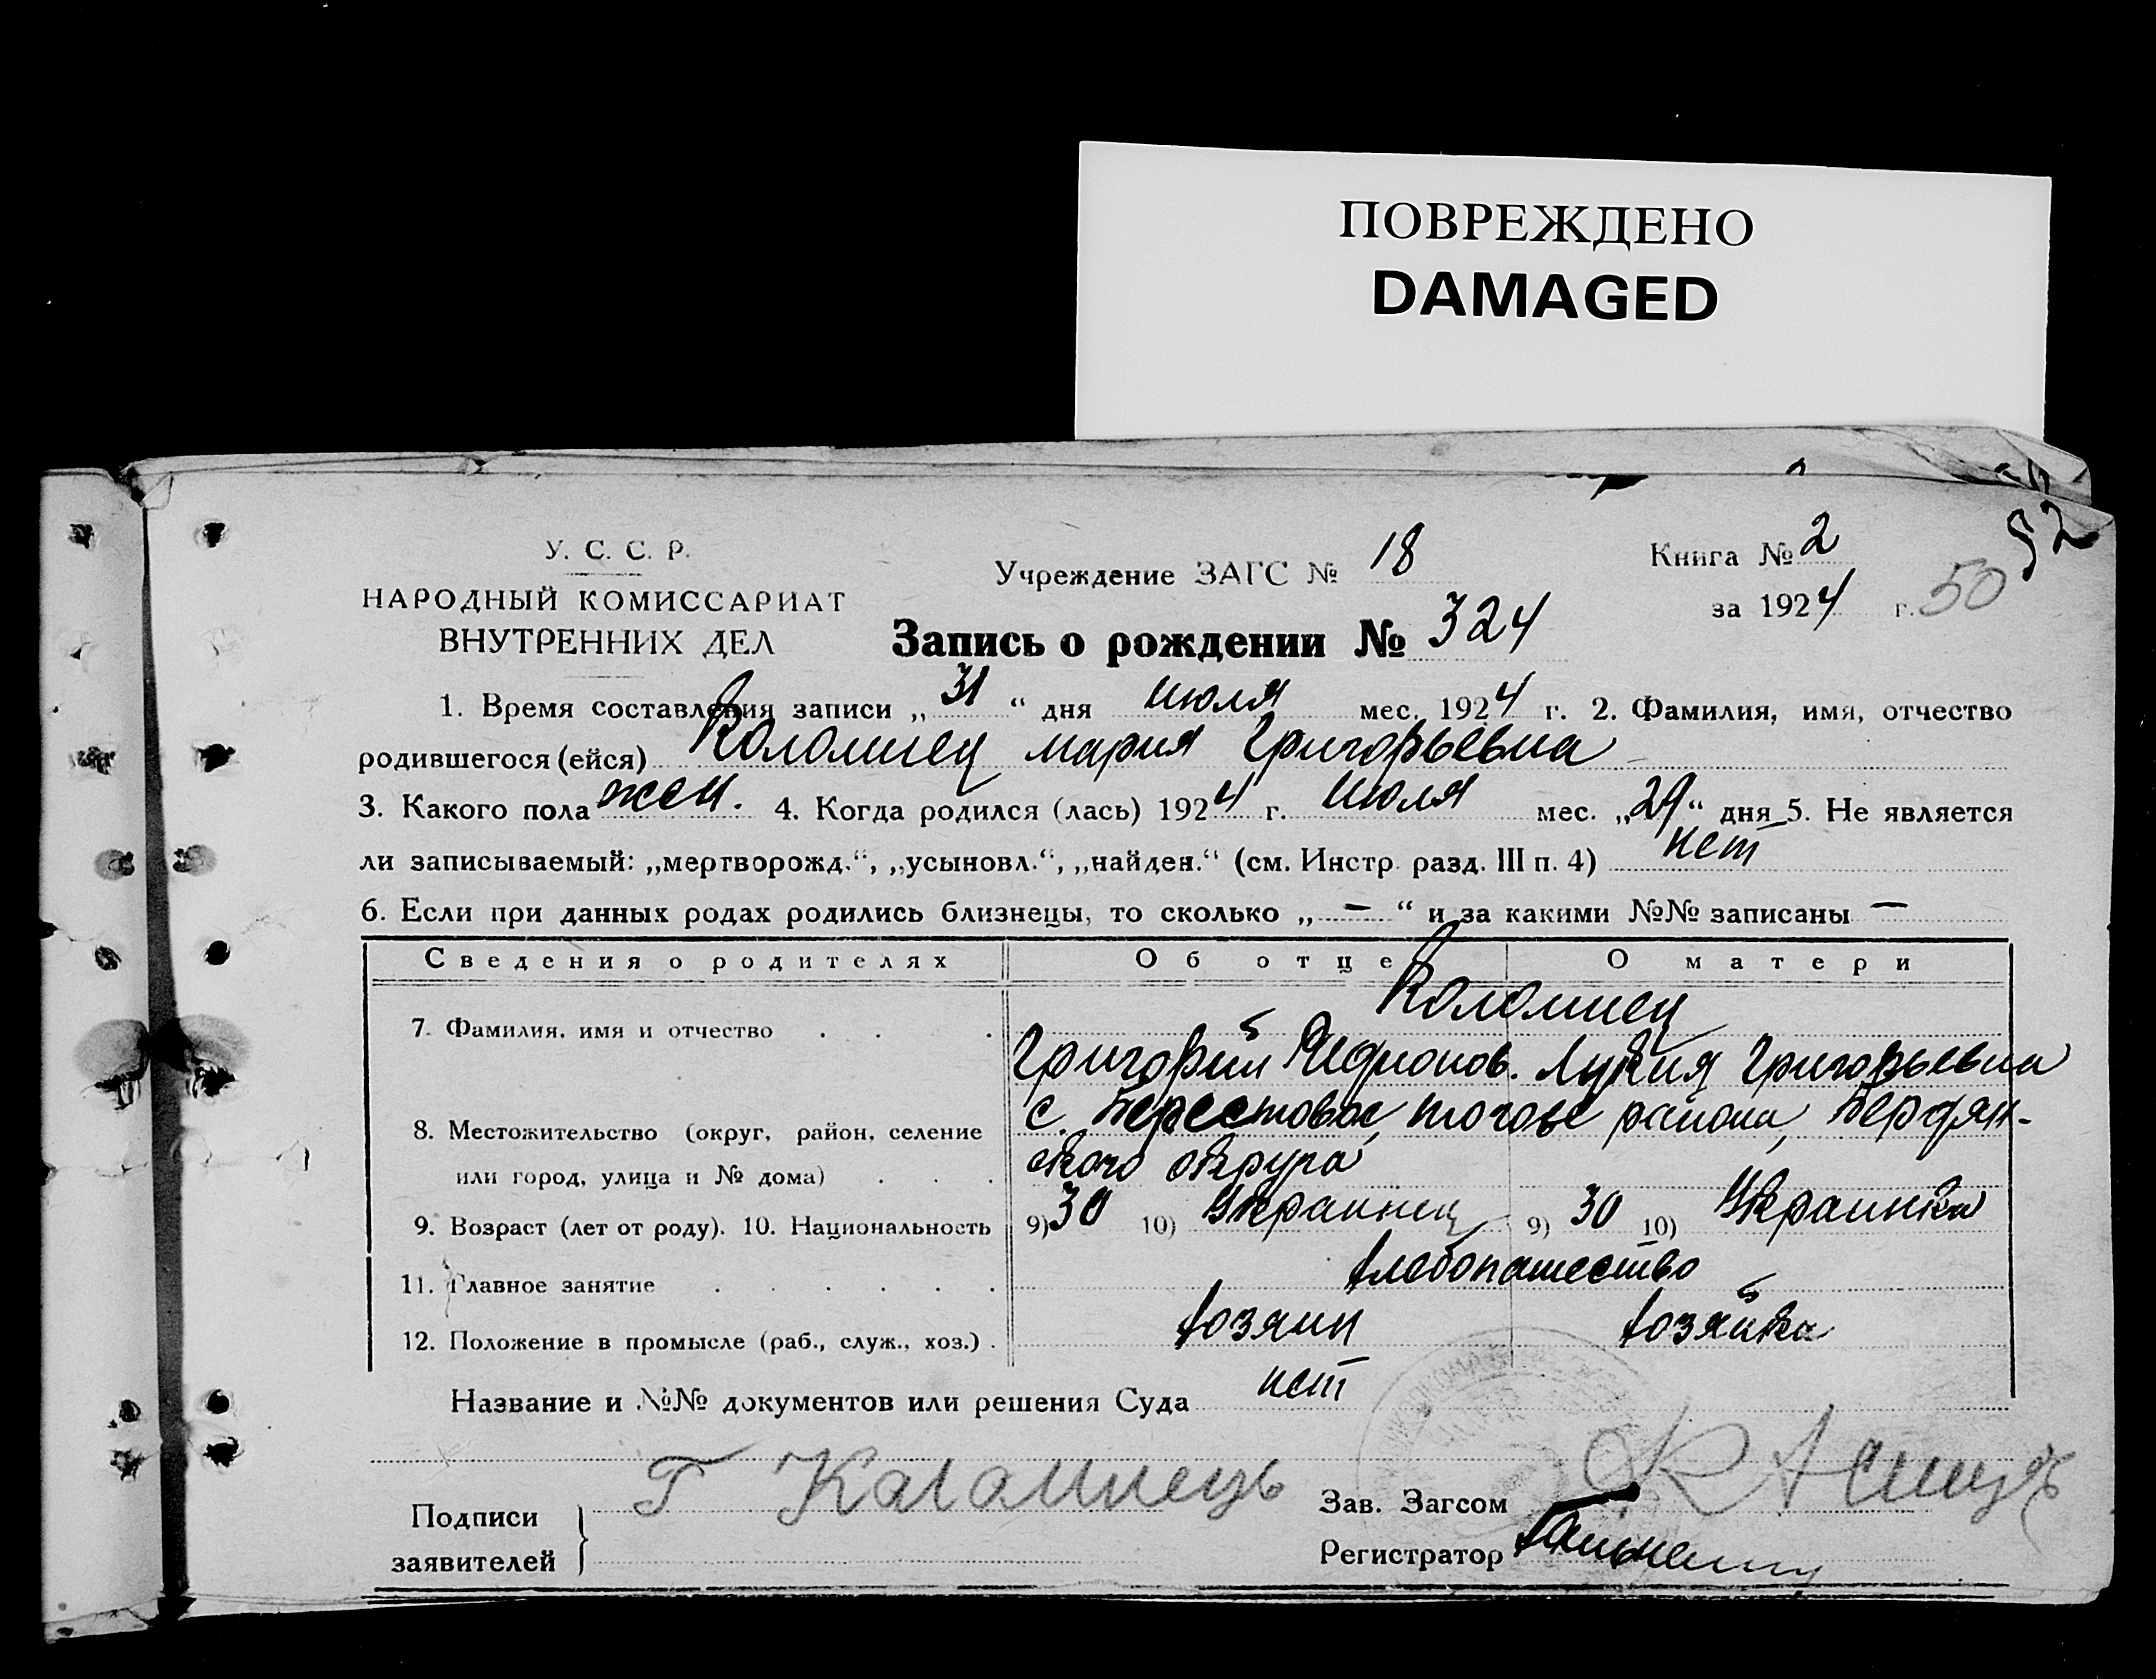 ПОВРЕЖДЕНО
DAMAGED
52
У. С. С. Р.
НАРОДНЫЙ КОМИССАРИАТ
ВНУТРЕННИХ ДЕЛ
Учреждение ЗАГС № 18
Книга № 2
за 1924 г. 50
Запись о рождении № 324
1. Время составления записи „31“ дня июля мес. 1924 г. 2. Фамилия, имя, отчество
родившегося (ейся) Коломиец Мария Григорьевна
3. Какого пола жен. 4. Когда родился (лась) 1924 г. июля мес. „29“ дня 5. Не является
ли записываемый: „мертворожд.“, „усыновл.“, „найден.“ (см. Инстр. разд. III п. 4) нет
6. Если при данных родах родились близнецы, то сколько „—“ и за какими №№ записаны —
Сведения о родителях Об отце О матери
Коломиец
7. Фамилия, имя и отчество . . .
Григорий Лукия Григорьевна
8. Местожительство (округ, район, селение с. Берестовое, района, Бердян-
или город, улица и № дома) . . . ского округа
9. Возраст (лет от роду). 10. Национальность 9) 30 10) Украинец 9) 30 10) Украинка
11. Главное занятие . . . . . . хлебопашество
12. Положение в промысле (раб., служ., хоз.) . хозяин хозяйка
Название и №№ документов или решения Суда нет
Подписи
заявителей
Г Каламиець
Зав. Загсом
Регистратор